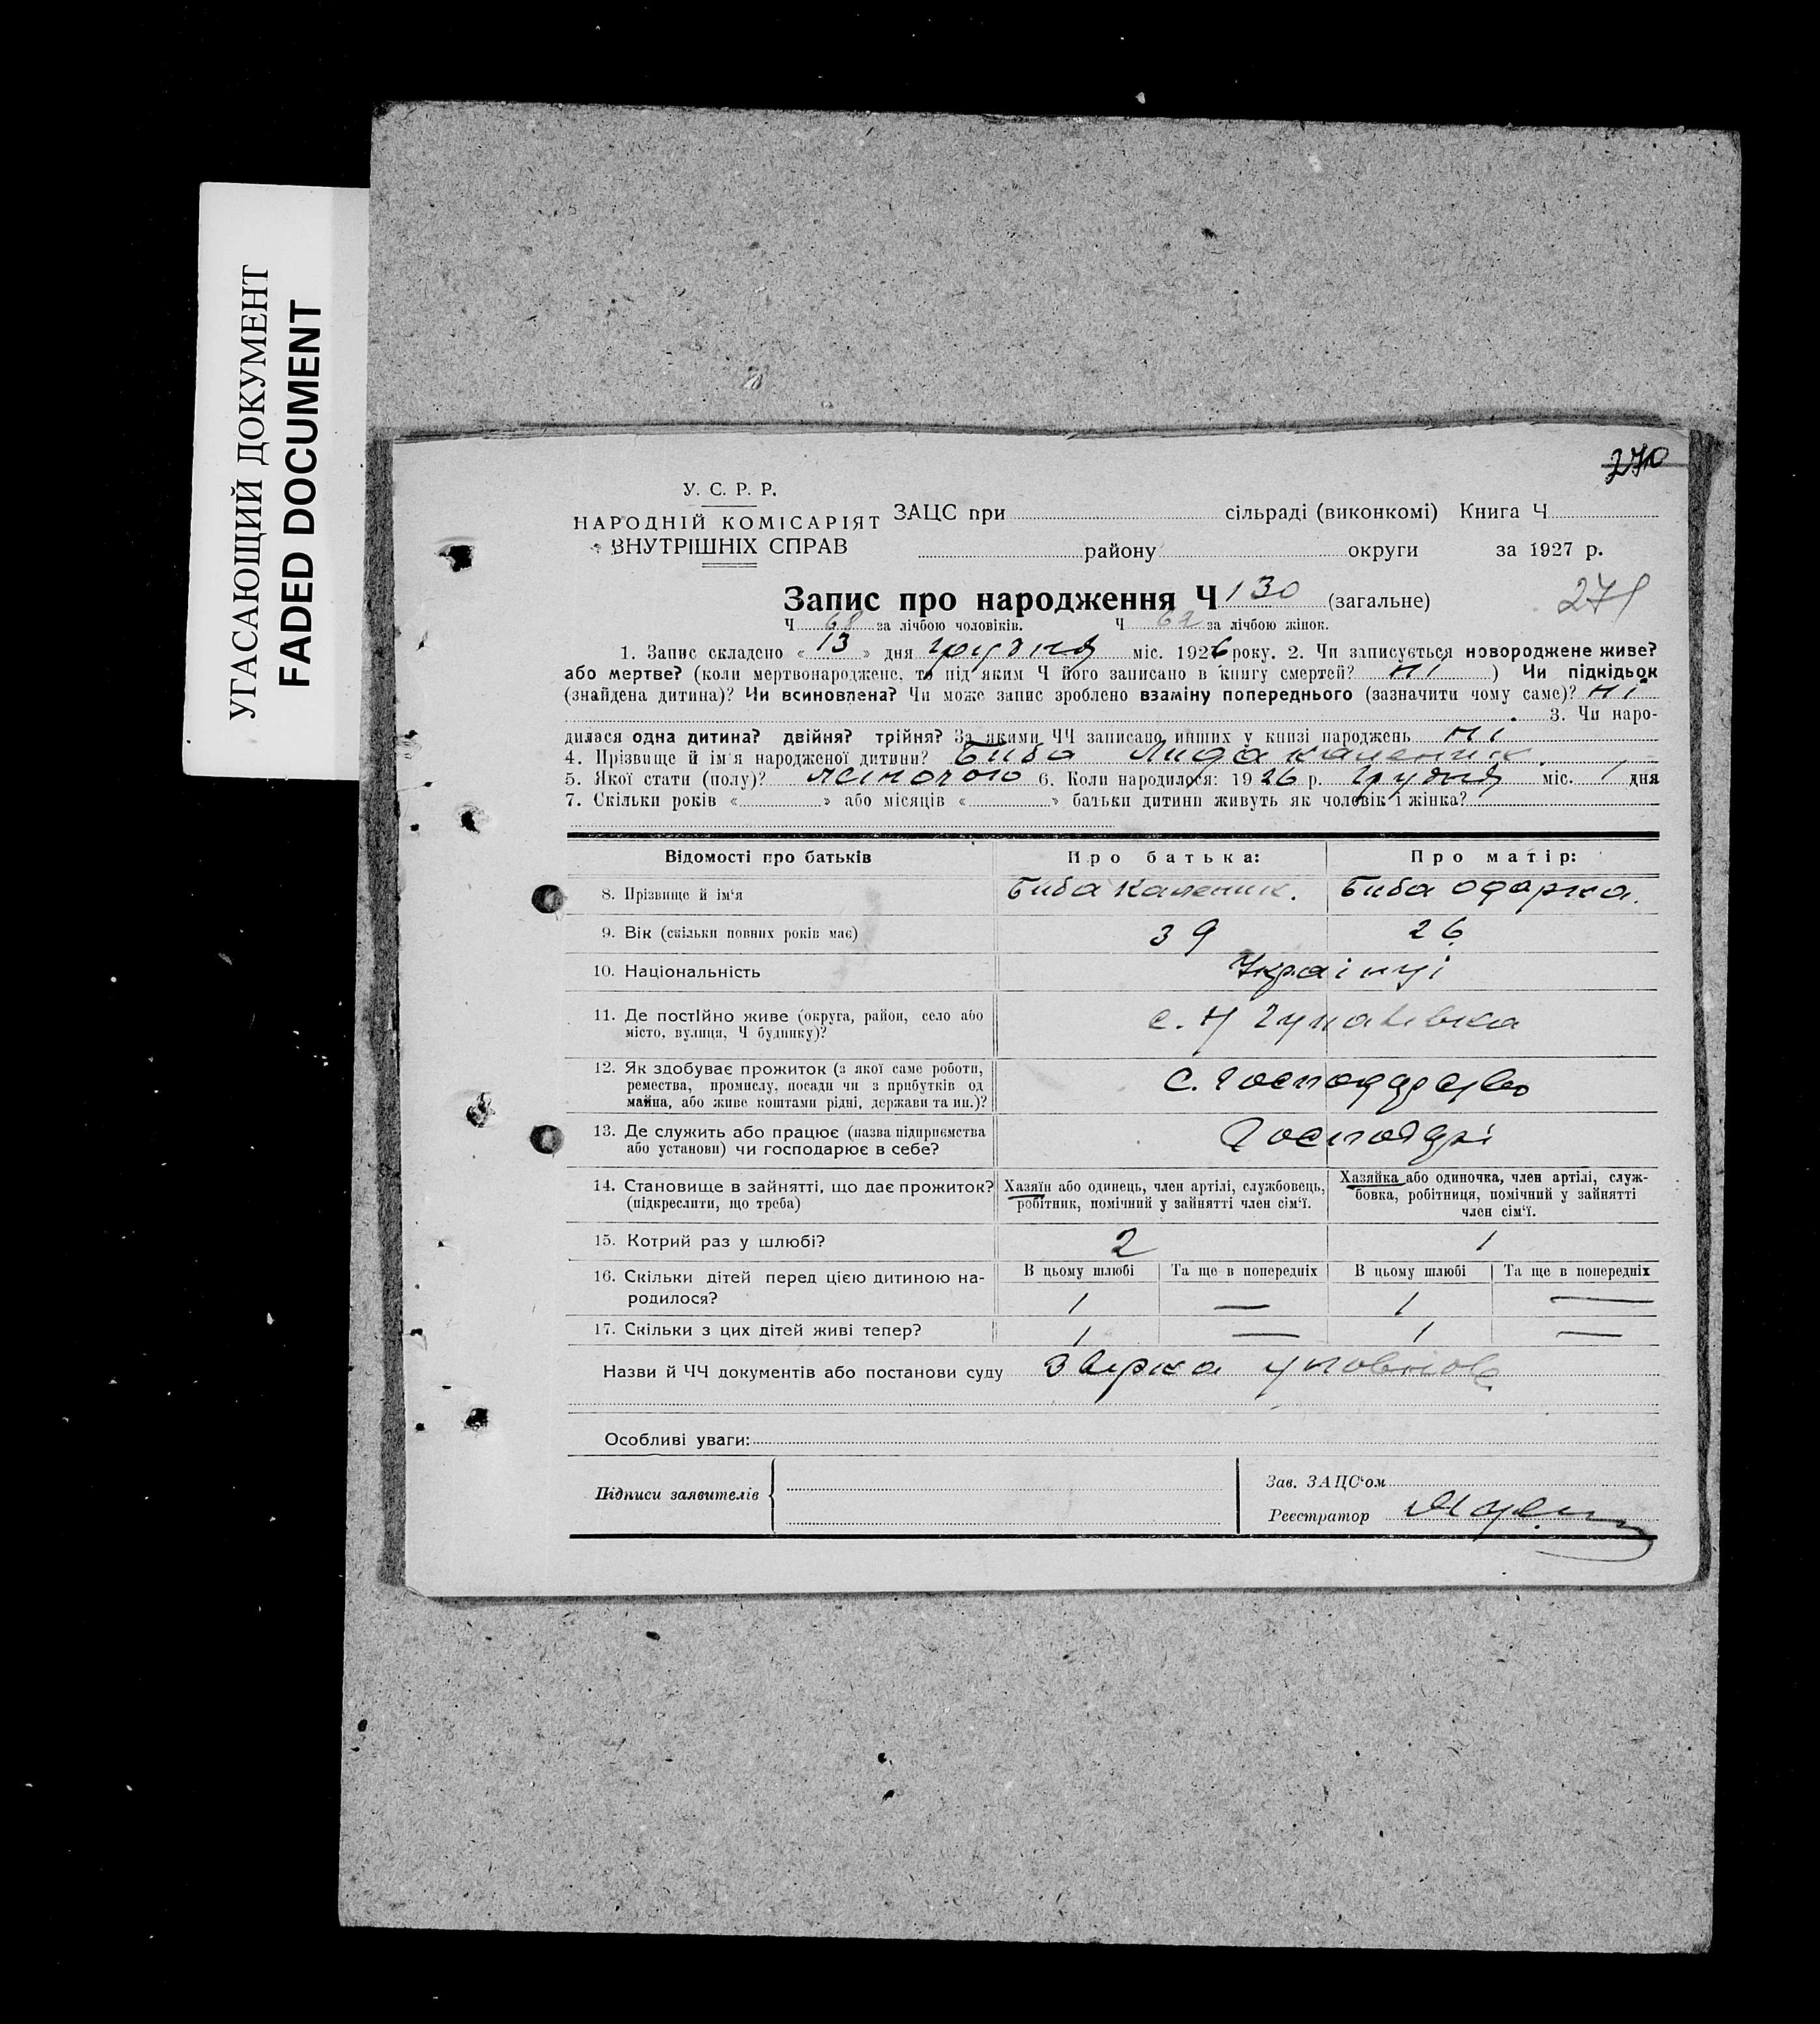 УГАСАЮЩИЙ ДОКУМЕНТ
FADED DOCUMENT
270
У. С. Р. Р.
НАРОДНІЙ КОМІСАРІЯТ
ВНУТРІШНІХ СПРАВ
ЗАЦС при сільраді (виконкомі) Книга Ч
району округи за 1927 р.
271
Запис про народження Ч 130 (загальне)
Ч 68 за лічбою чоловіків. Ч 62 за лічбою жінок.
1. Запис складено « 13 » дня грудня міс. 1926 року. 2. Чи записується новороджене живе?
або мертве? (коли мертвонароджене, то під яким Ч його записано в книгу смертей? ні ) Чи підкідьок
(знайдена дитина)? Чи всиновлена? Чи може запис зроблено взаміну попереднього (зазначити чому саме)? ні
3. Чи наро-
дилася одна дитина? двійня? трійня? За якими ЧЧ записано инших у книзі народжень ні
4. Прізвище й ім'я народженої дитини? Биба Лида каленик
5. Якої стати (полу)? жіночого 6. Коли народилося: 1926 р. Грудня міс. 1 дня
7. Скільки років « » або місяців « » батьки дитини живуть як чоловік і жінка?
Відомості про батьків Про батька: Про матір:
8. Прізвище й ім'я Биба Каленик. Биба одарка.
9. Вік (скільки повних років має) 39 26
10. Національність Українці
11. Де постійно живе (округа, район, село або
місто, вулиця, Ч будинку)? с. Н
12. Як здобуває прожиток (з якої саме роботи,
ремества, промислу, посади чи з прибутків од
майна, або живе коштами рідні, держави та ин.)? С. господарство
13. Де служить або працює (назва підприємства
або установи) чи господарює в себе?
14. Становище в зайнятті, що дає прожиток?
(підкреслити, що треба)
Хазяїн або одинець, член артілі, службовець,
робітник, помічний у зайнятті член сім'ї.
Хазяйка або одиночка, член артілі, служ-
бовка, робітниця, помічний у зайнятті
член сім'ї.
15. Котрий раз у шлюбі? 2 1
16. Скільки дітей перед цією дитиною на-
родилося?
В цьому шлюбі Та ще в попередніх В цьому шлюбі Та ще в попередніх
1 — 1 —
17. Скільки з цих дітей живі тепер? 1 — 1 —
Назви й ЧЧ документів або постанови суду
Особливі уваги:
Підписи заявителів
Зав. ЗАЦС'ом
Реєстратор